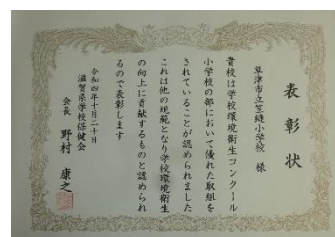 表彰状
草津市立笠縫小学校 様
貴校は学校環境衛生コンクール
小学校の部において優れた取組を
されていることが認められました
これは他の規範となり学校環境衛生
の向上に貢献するものと認められ
るので表彰します
令和四年十月二十日
滋賀県学校保健会
会長 野村 康之